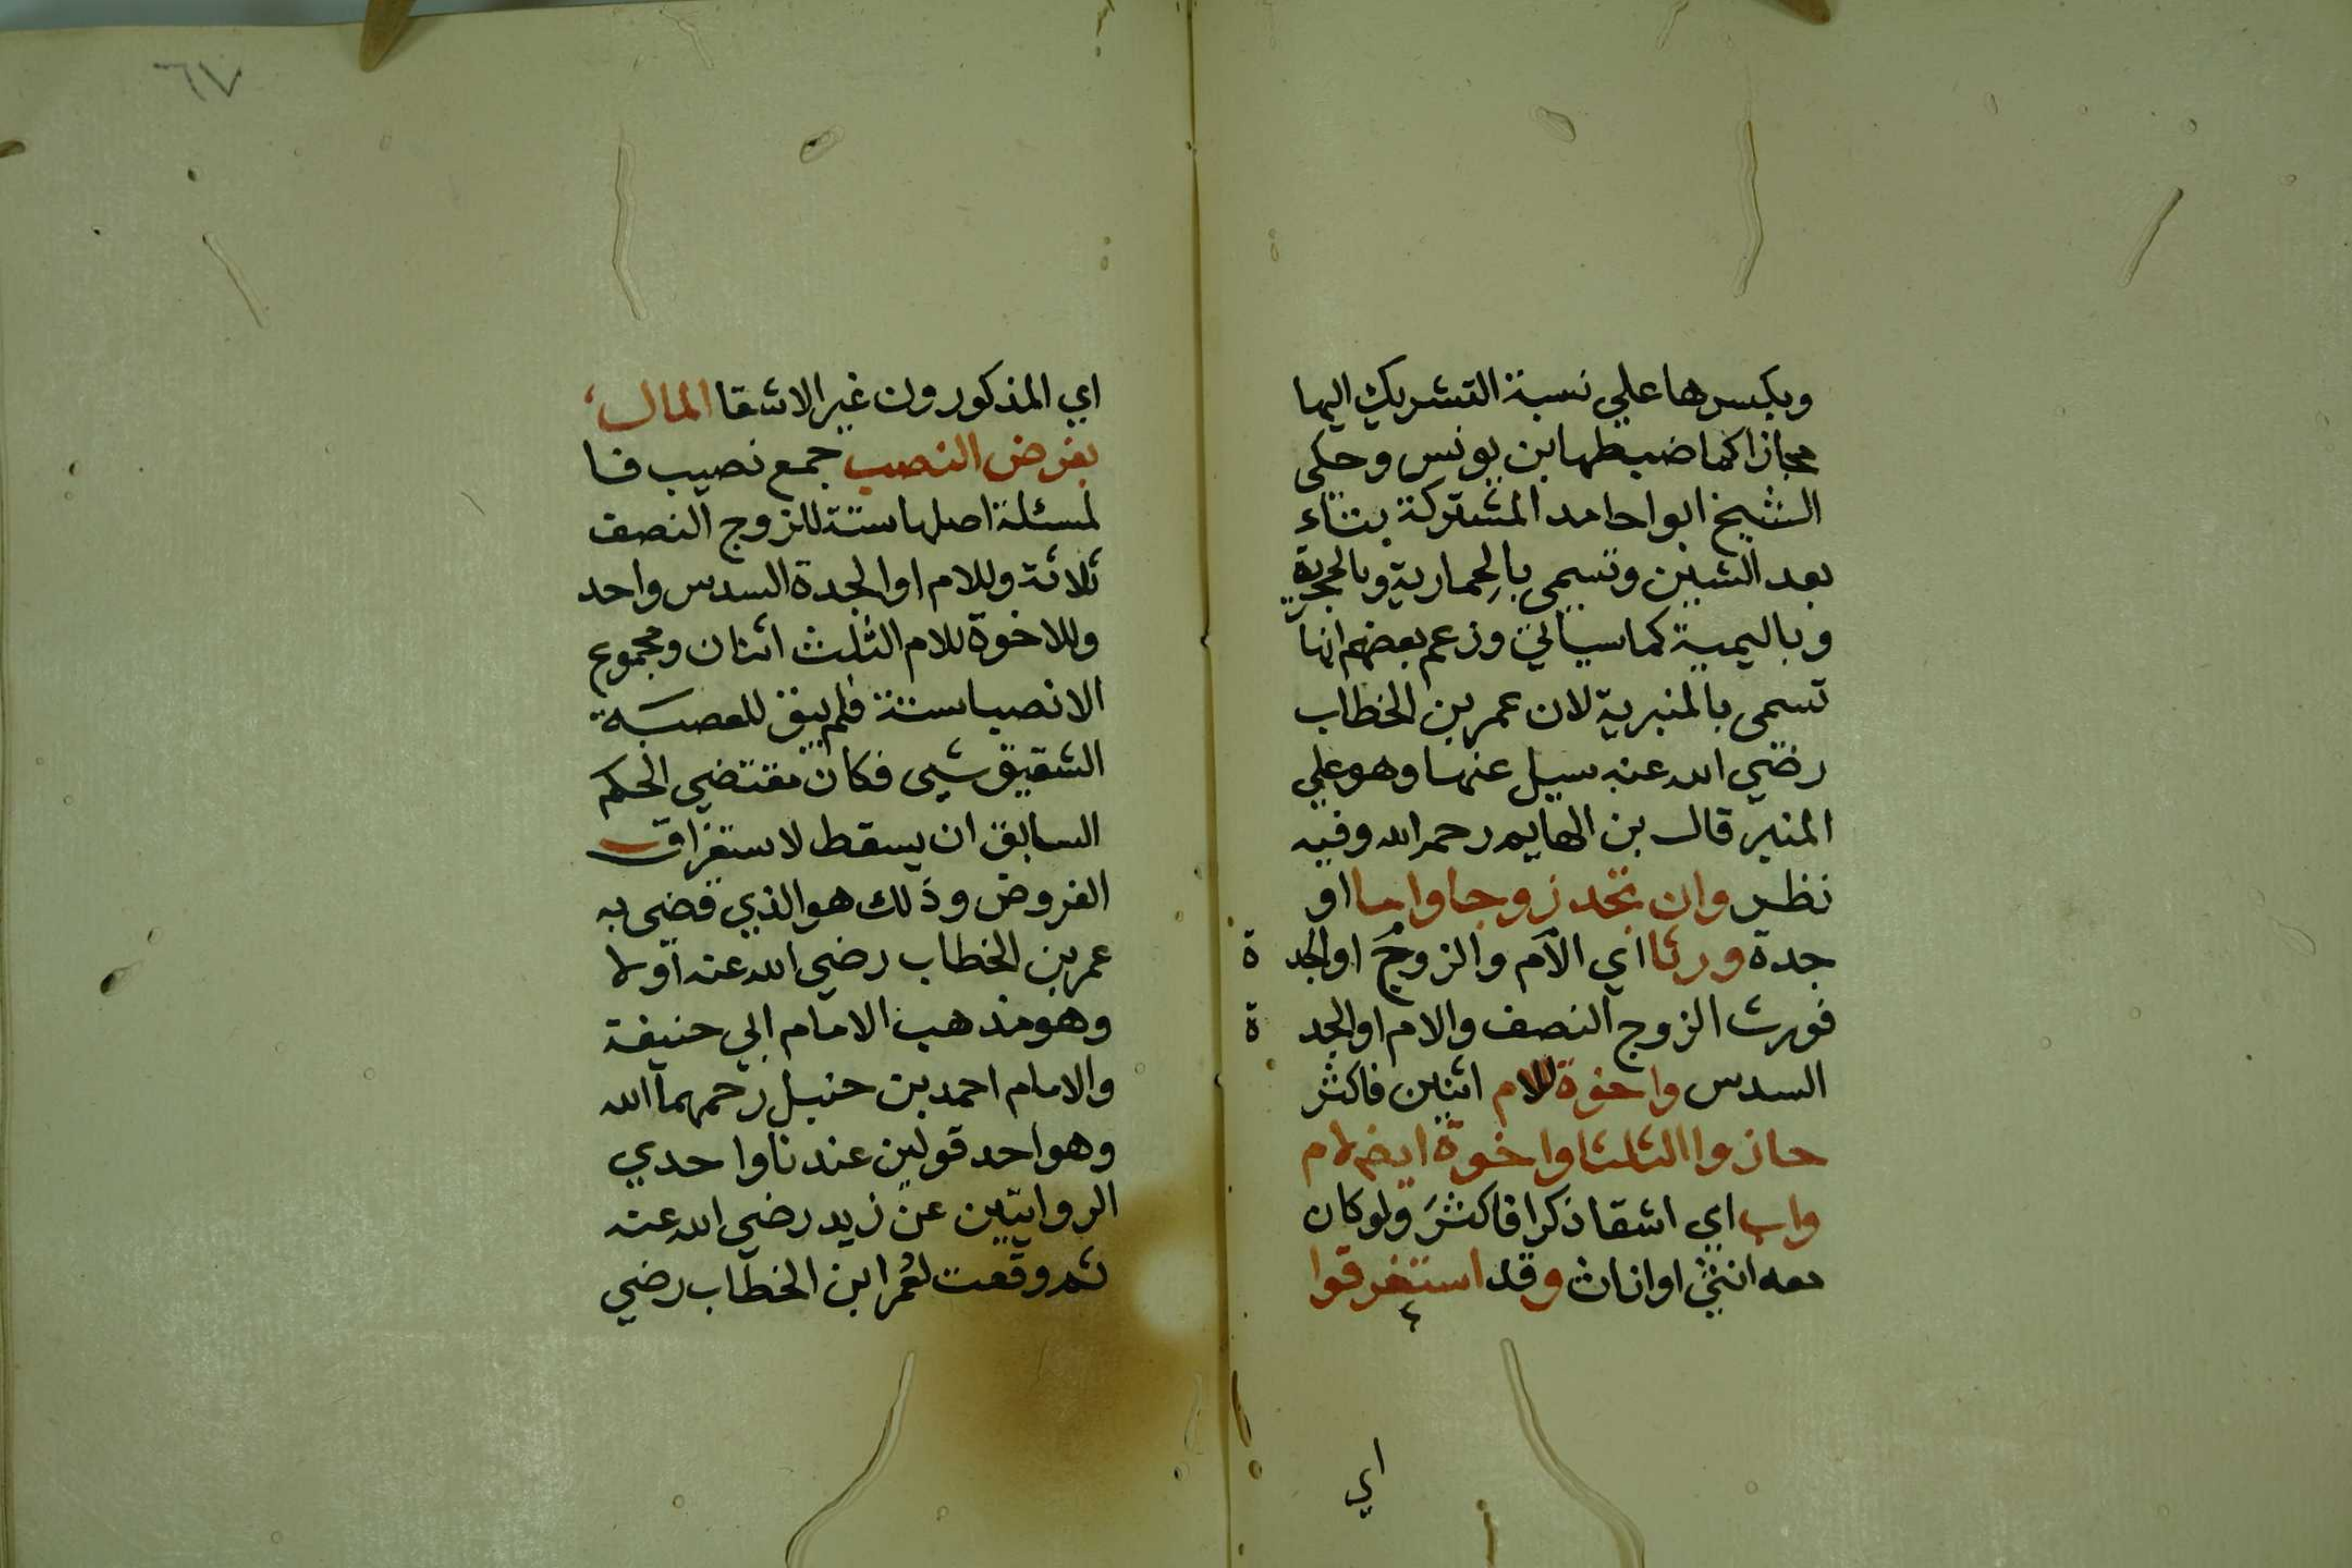 وبكسرها علي نسبة التشريك اليها
مجازا كما ضبطها ابن يونس وحكي
الشيخ ابوا حامد المشتركة بتاء
بعد الشين وتسمى بالحمارية وبالحجرية
وباليمية كما سياتي وزعم بعضهم انها
تسمى بالمنبرية لان عمر بن الخطاب
رضي الله عنه سيل عنها وهو علي
المنبر قال بن الهايم رحمه الله وفيه
نظر وان تجد زوجا واما او
جدة ورثا اي الام والزوج او الجدة
فورث الزوج النصف والام او الجدة
السدس واخوة للام اثنين فاكثر
حازوا الثلثا واخوة ايضا لام
واب اي اشقا ذكرا فاكثر ولو كان
معه انثى او اناث وقد استغرقوا
اي
٦٧
اي المذكورون غير الاشقا المال
بفرض النصب جمع نصيب فا
لمسئلة اصلها ستة للزوج النصف
ثلاثة وللام او الجدة السدس واحد
وللاخوة للام الثلث اثنان ومجموع
الانصبا ستة فلم يبق للعصبة
الشقيق شيى فكان مقتضي الحكم
السابق ان يسقط لاستغراق
الفروض وذلك هو الذي قضى به
عمر بن الخطاب رضي الله عنه اولا
وهو مذهب الامام ابي حنيفة
والامام احمد بن حنبل رحمهما الله
وهو احد قولين عندنا واحدي
الروايتين عن زيد رضي الله عنه
ثم وقعت لعمر ابن الخطاب رضي